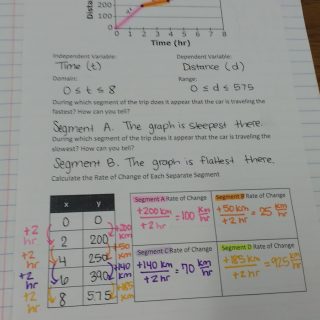 200
100
0
Dista
Time (hr)
Independent Variable: Dependent Variable:
Time (t) Distance (d)
Domain: Range:
0 ≤ t ≤ 8 0 ≤ d ≤ 575
During which segment of the trip does it appear that the car is traveling the
fastest? How can you tell?
Segment A. The graph is steepest there.
During which segment of the trip does it appear that the car is traveling the
slowest? How can you tell?
Segment B. The graph is flattest there.
Calculate the Rate of Change of Each Separate Segment
x y
0 0
2 200
4 250
6 390
8 575
+2 hr
+2 hr
+2 hr
+2 hr
+200 km
+50 km
+140 km
+185 km
Segment A Rate of Change
+200 km / +2 hr = 100 km/hr
Segment B Rate of Change
+50 km / +2 hr = 25 km/hr
Segment C Rate of Change
+140 km / +2 hr = 70 km/hr
Segment D Rate of Change
+185 km / +2 hr = 92.5 km/hr